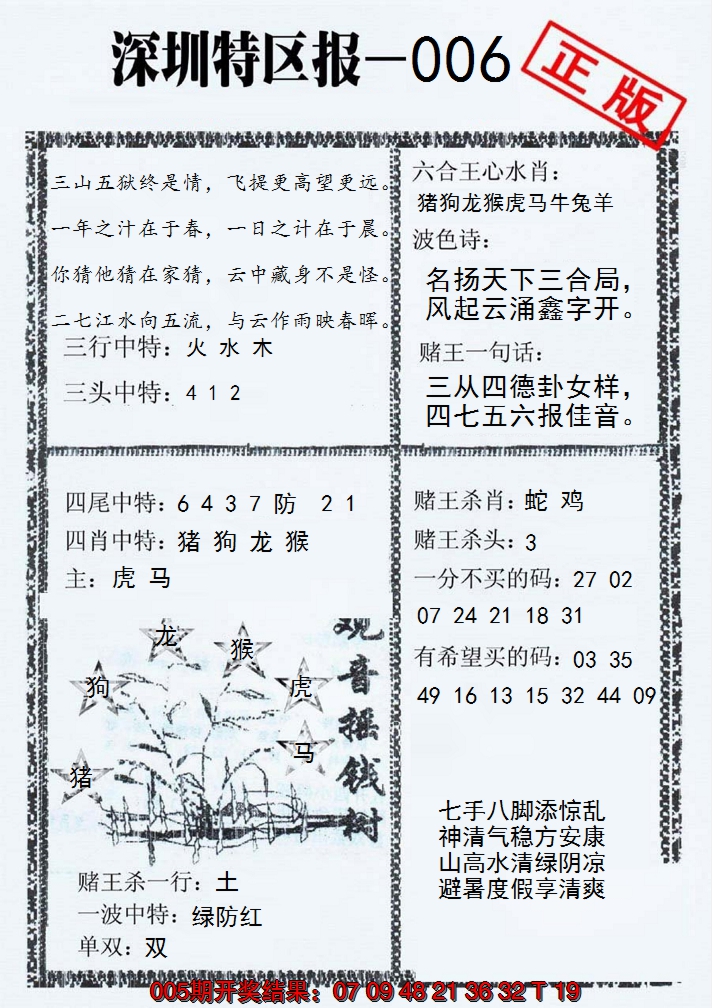 深圳特区报—006
正版
三山五狱终是情，飞提更高望更远。
一年之汁在于春，一日之计在于晨。
你猜他猜在家猜，云中藏身不是怪。
二七江水向五流，与云作雨映春晖。
三行中特：火 水 木
三头中特：4 1 2
六合王心水肖：
猪狗龙猴虎马牛兔羊
波色诗：
名扬天下三合局，
风起云涌鑫字开。
赌王一句话：
三从四德卦女样，
四七五六报佳音。
四尾中特：6 4 3 7 防 2 1
四肖中特：猪 狗 龙 猴
主：虎 马
观音摇钱树
龙
猴
狗
虎
马
猪
赌王杀一行：土
一波中特：绿防红
单双：双
赌王杀肖：蛇 鸡
赌王杀头：3
一分不买的码：27 02
07 24 21 18 31
有希望买的码：03 35
49 16 13 15 32 44 09
七手八脚添惊乱
神清气稳方安康
山高水清绿阴凉
避暑度假享清爽
005期开奖结果：07 09 48 21 36 32 T 19